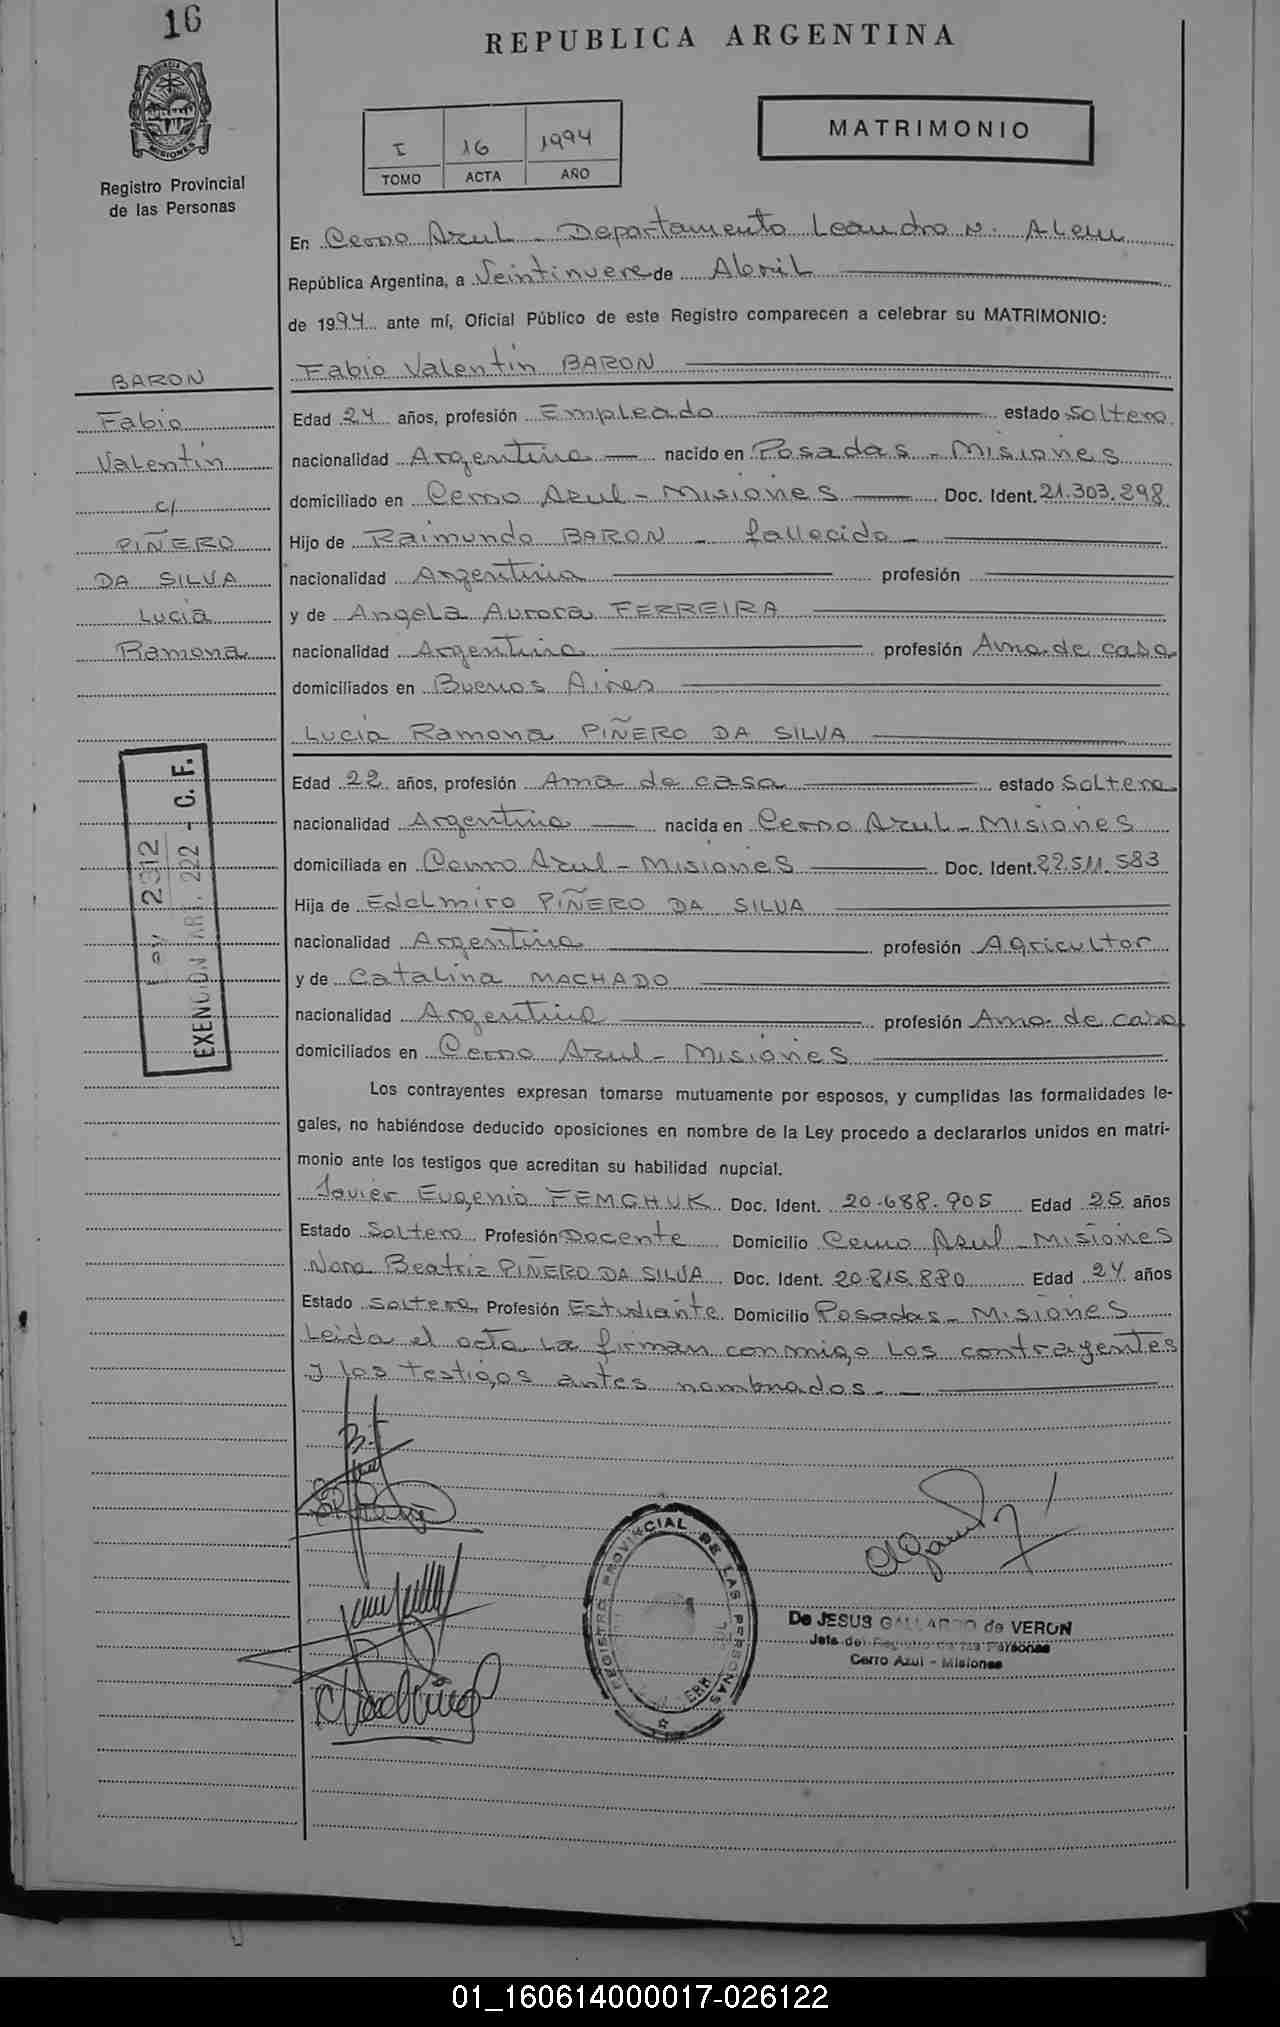 16
REPUBLICA ARGENTINA
PROVINCIA DE
MISIONES
Registro Provincial
de las Personas
I 16 1994
TOMO ACTA AÑO
MATRIMONIO
En Cerro Azul - Departamento Leandro N. Alem
República Argentina, a Veintinueve de Abril
de 1994 ante mí, Oficial Público de este Registro comparecen a celebrar su MATRIMONIO:
Fabio Valentín BARON
BARON
Fabio
Valentín
c/
PIÑERO
DA SILVA
Lucia
Ramona
Edad 24 años, profesión Empleado estado Soltero
nacionalidad Argentina nacido en Posadas - Misiones
domiciliado en Cerro Azul - Misiones Doc. Ident. 21.303.298
Hijo de Raimundo BARON - fallecido -
nacionalidad Argentina profesión
y de Angela Aurora FERREIRA
nacionalidad Argentina profesión Ama de casa
domiciliados en Buenos Aires
Lucia Ramona PIÑERO DA SILVA
Edad 22 años, profesión Ama de casa estado Soltera
nacionalidad Argentina nacida en Cerro Azul - Misiones
domiciliada en Cerro Azul - Misiones Doc. Ident. 22.511.583
Hija de Edelmiro PIÑERO DA SILVA
nacionalidad Argentina profesión Agricultor
y de Catalina MACHADO
nacionalidad Argentina profesión Ama de casa
domiciliados en Cerro Azul - Misiones
Ley 2312
EXENCION ART. 222 - C. F.
Los contrayentes expresan tomarse mutuamente por esposos, y cumplidas las formalidades le-
gales, no habiéndose deducido oposiciones en nombre de la Ley procedo a declararlos unidos en matri-
monio ante los testigos que acreditan su habilidad nupcial.
Javier Eugenio FEMCHUK Doc. Ident. 20.688.905 Edad 25 años
Estado Soltero Profesión Docente Domicilio Cerro Azul - Misiones
Nora Beatriz PIÑERO DA SILVA Doc. Ident. 20.815.880 Edad 24 años
Estado Soltera Profesión Estudiante Domicilio Posadas - Misiones
Leida el acta la firman conmigo los contrayentes
y los testigos antes nombrados. -
REGISTRO PROVINCIAL DE LAS PERSONAS
De JESUS GALLARDO de VERON
Jefa del Registro de las Personas
Cerro Azul - Misiones
01_160614000017-026122